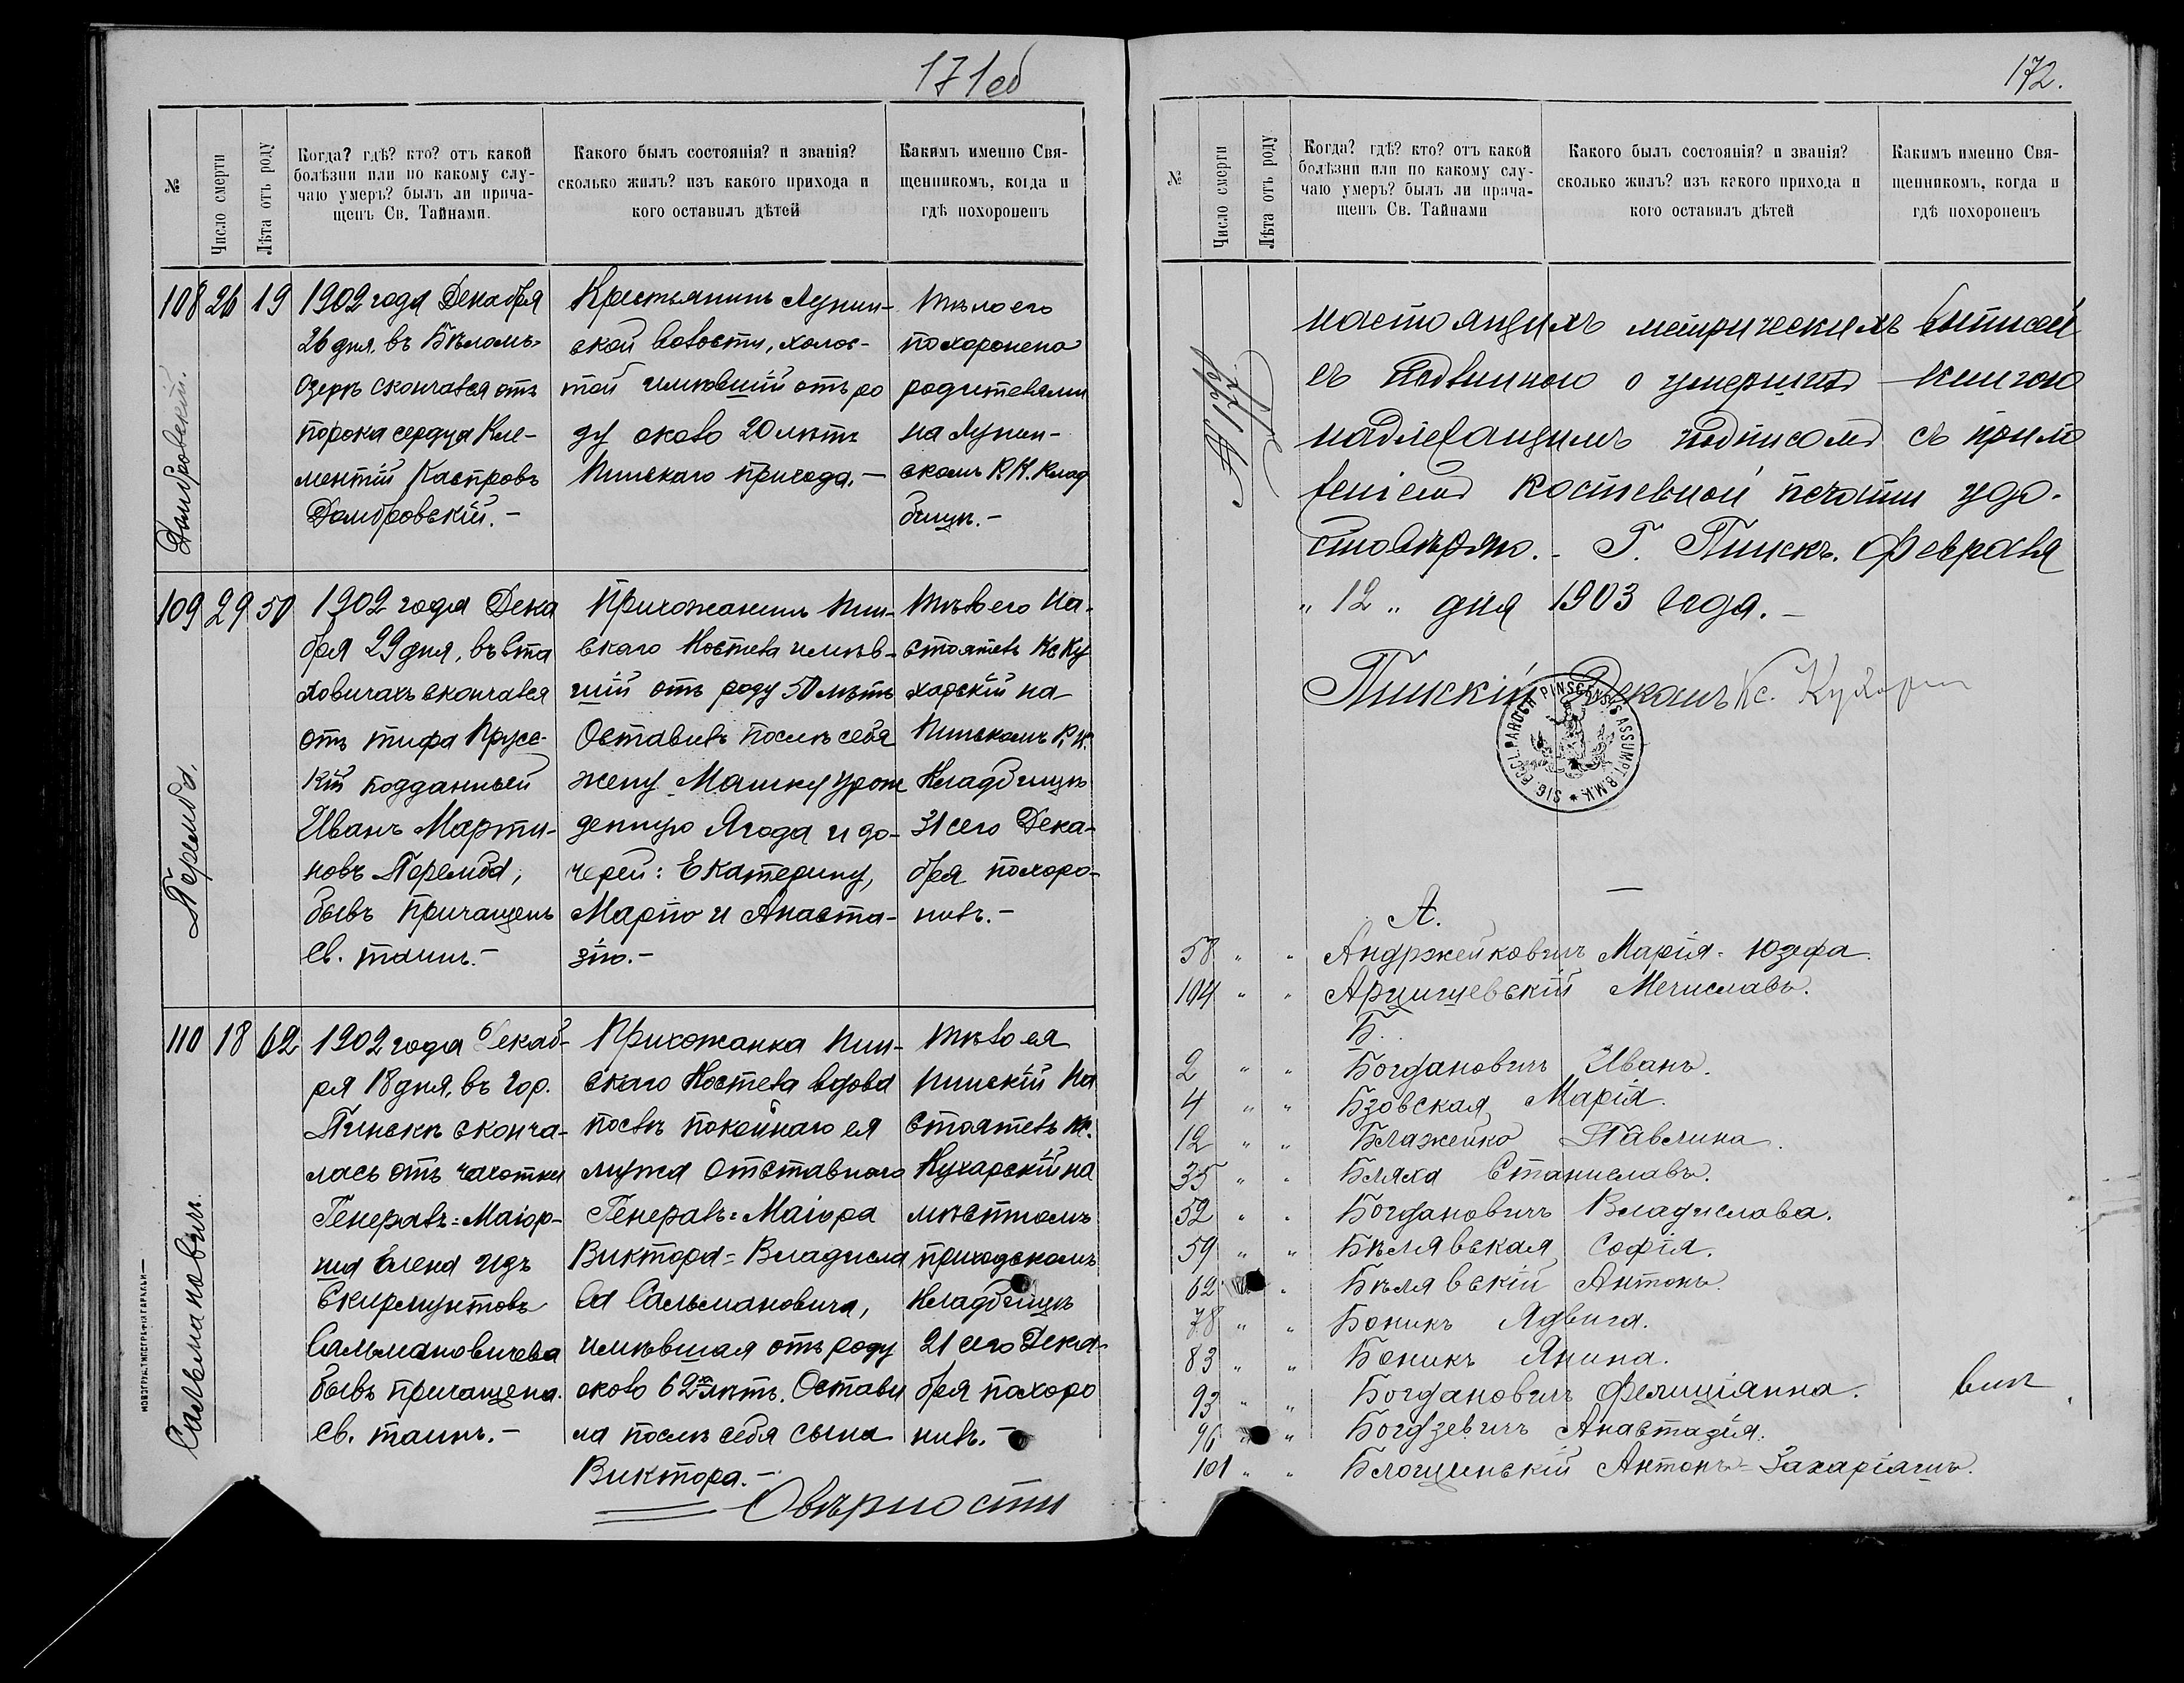 171об
№
Число смерти
Лѣта отъ роду
Когда? гдѣ? кто? отъ какой
болѣзни или по какому слу-
чаю умеръ? былъ ли прича-
щенъ Св. Тайнами.
Какого былъ состоянія? и званія?
сколько жилъ? изъ какого прихода и
кого оставилъ дѣтей
Какимъ именно Свя-
щенникомъ, когда и
гдѣ похороненъ
108 26 19
Домбровскій.
1902 года Декабря
26 дня, въ Бѣломъ-
Озеркѣ скончался отъ
порока сердца Кле-
ментій Каспровъ
Домбровскій.-
Крестьянинъ Лунин-
ской волости, холос-
той имѣвшій отъ ро
ду около 20 лѣтъ
Пинскаго прихода.-
Тѣло его
похоронено
родителями
на Лунин-
скомъ Р.К. Клад
бищѣ.-
109 29 50
Перемба.
1902 года Дека
бря 29 дня, въ Ста
ховичахъ скончался
отъ тифа Прусс-
кій подданный
Иванъ Марти-
новъ Перемба,
бывъ причащенъ
Св. таинъ.-
Прихожанинъ Пин-
скаго Костела имѣв-
шій отъ роду 50 лѣтъ
Оставилъ послѣ себя
жену Машку урож
денную Ягода и до-
черей: Екатерину,
Марію и Анаста-
зію.-
Тѣло его На-
стоятель Кс Ку
харскій на
Пинскомъ Р.К.
Кладбищѣ
31 сего Дека-
бря похоро-
нилъ.-
110 18 62
Сальмановичъ.
1902 года Декаб-
ря 18 дня, въ гор.
Пинскѣ сконча-
лась отъ чахотки
Генералъ=Маіор-
ша Елена изъ
Скирмунтовъ
Сальмановичева
бывъ причащена
Св. таинъ.-
Прихожанка Пин-
скаго Костела вдова
послѣ покойнаго ея
мужа Отставного
Генералъ=Маіора
Виктора=Владисла
ва Сальмановича,
имѣвшая отъ роду
около 62 лѣтъ. Остави
ла послѣ себя сына
Виктора.-
Тѣло ея
Пинскій На
стоятель Кс.
Кухарскій на
мѣстномъ
приходскомъ
Кладбищѣ
21 сего Дека-
бря похоро
нилъ.-
О вѣрности
172.
№
Число смерти
Лѣта отъ роду
Когда? гдѣ? кто? отъ какой
болѣзни или по какому слу-
чаю умеръ? былъ ли прича-
щенъ Св. Тайнами
Какого былъ состоянія? и званія?
сколько жилъ? изъ какого прихода и
кого оставилъ дѣтей
Какимъ именно Свя-
щенникомъ, когда и
гдѣ похороненъ
настоящихъ метрическихъ выписей
съ подлинною о умершихъ книгою
надлежащимъ подписомъ съ прило
женіемъ костельной печати удо-
стовѣряю.- Г. Пинскъ. Февраля
"12" дня 1903 года.-
Пинскій Деканъ Кс. Кухарскій
SIG. ECCL. PAROCH. PINSCENSIS ASSUMPT. B.M.V.
А.
58 " " Андржейковичъ Марія-Юзефа.
104 " " Арцишевскій Мечиславъ.
Б.
2 " " Богдановичъ Иванъ.
4 " " Бзовская Марія.
12 " " Блажейко Павлина.
35 " " Бляха Станиславъ.
52 " " Богдановичъ Владислава.
59 " " Бѣлявская Софія.
62 " Бѣлявскій Антонъ.
78 " " Боникъ Ядвига.
83 " " Боникъ Янина.
93 " " Богдановичъ Фелиціанна.
96 " " Богдзевичъ Анастазія.
101 " " Блощинскій Антонъ-Захаріашъ.